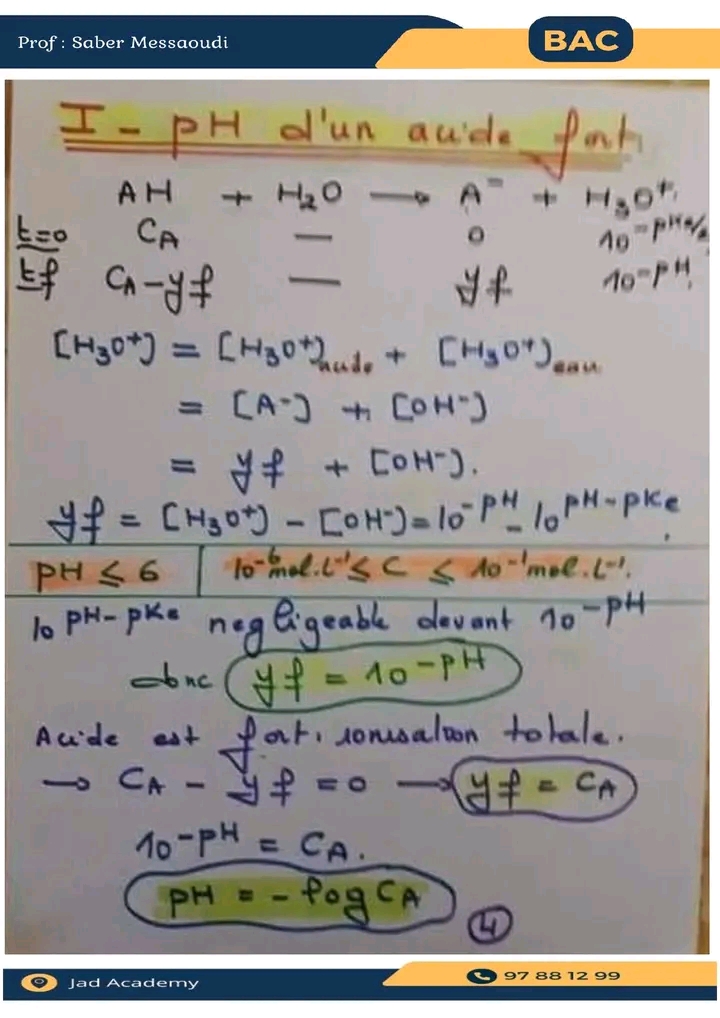 Prof : Saber Messaoudi
BAC
I - pH d'un acide fort
AH + H₂O → A⁻ + H₃O⁺
t=0 CA — 0 10^-pKe/2
tf CA-yf — yf 10^-pH
[H₃O⁺] = [H₃O⁺]acide + [H₃O⁺]eau
= [A⁻] + [OH⁻]
= yf + [OH⁻].
yf = [H₃O⁺] - [OH⁻] = 10^-pH - 10^pH-pKe
pH ≤ 6 | 10⁻⁶mol.L⁻¹ ≤ C ≤ 10⁻¹mol.L⁻¹.
10^pH-pKe negligeable devant 10^-pH
donc yf = 10^-pH
Acide est fort. ionisation totale.
→ CA - yf = 0 → yf = CA
10^-pH = CA.
pH = - log CA
4
Jad Academy
97 88 12 99